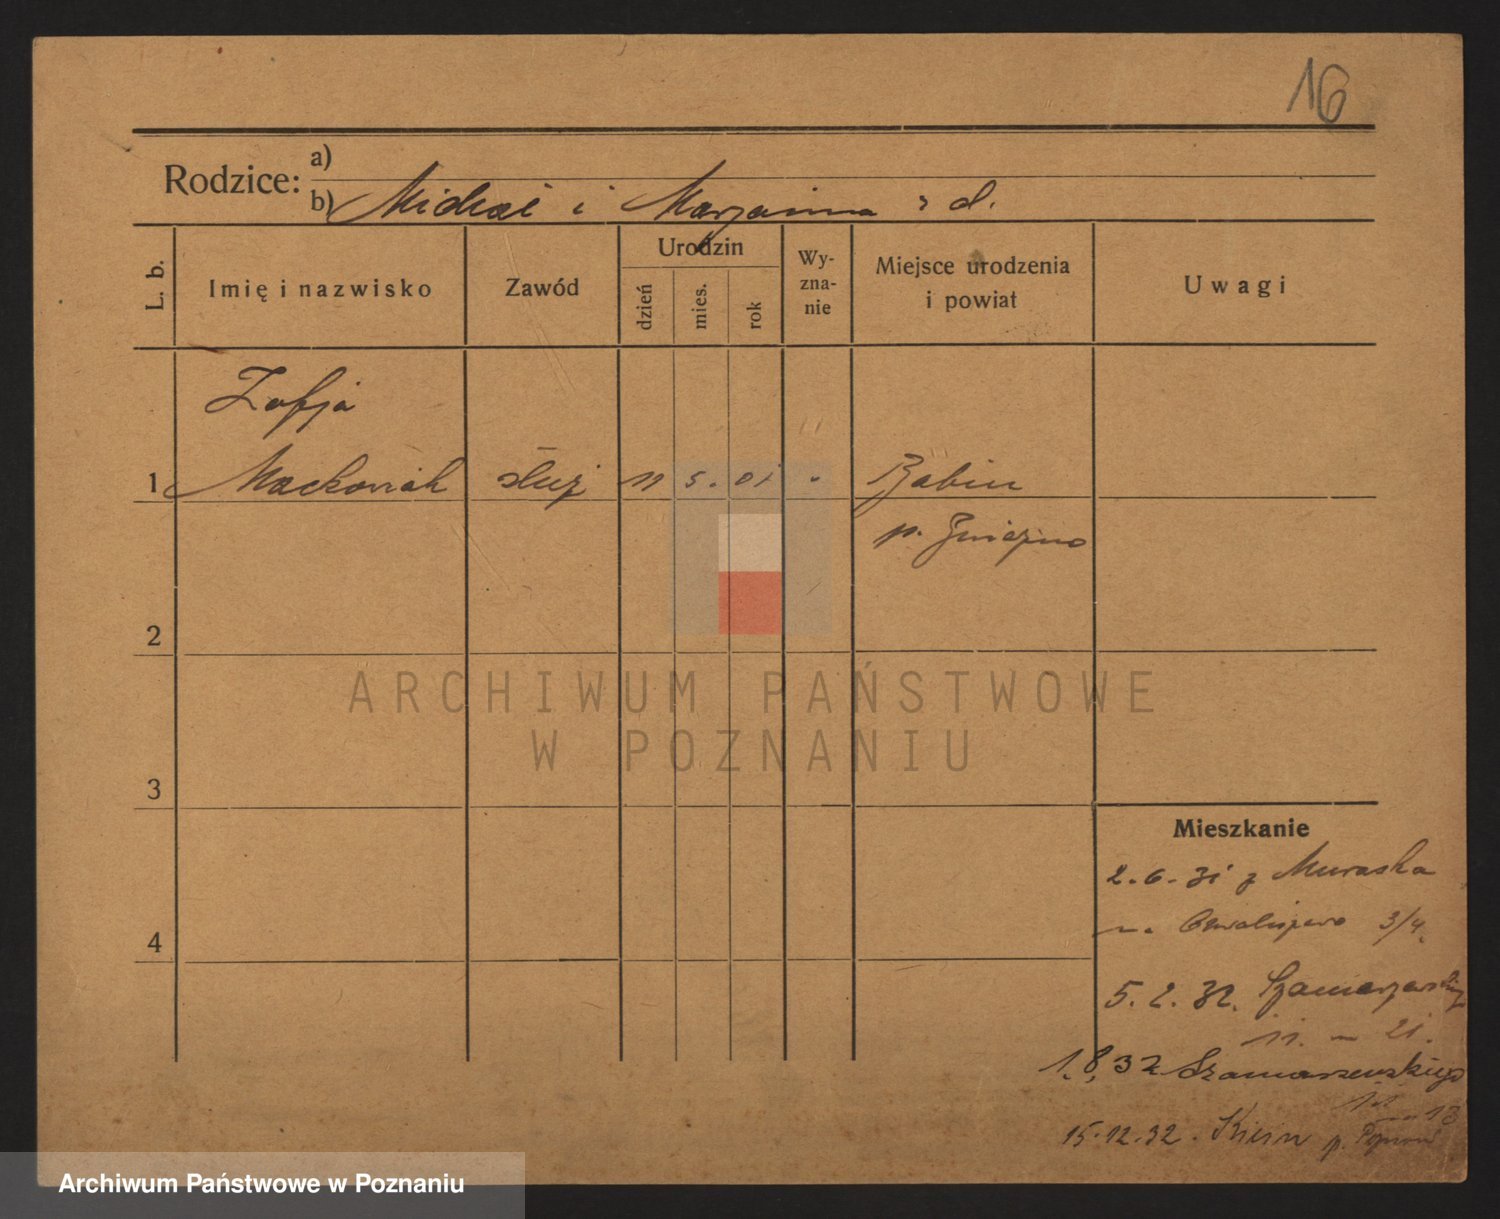 16
Rodzice:
a)
b) Michał i Marjanna z d.
L. b.
Imię i nazwisko
Zawód
Urodzin
dzień
mies.
rok
Wy-
zna-
nie
Miejsce urodzenia
i powiat
Uwagi
Zofja
1 Maćkowiak służ 11 5. 01 Babin
p. Gniezno
2
ARCHIWUM PAŃSTWOWE
W POZNANIU
3
Mieszkanie
2.6.31 z Muraska
3/4.
4
5.2.32. Szamarzewskiego
11. m 21.
1.8.32 Szamarzewskiego
m 13
15.12.32. Kicin p.
Archiwum Państwowe w Poznaniu